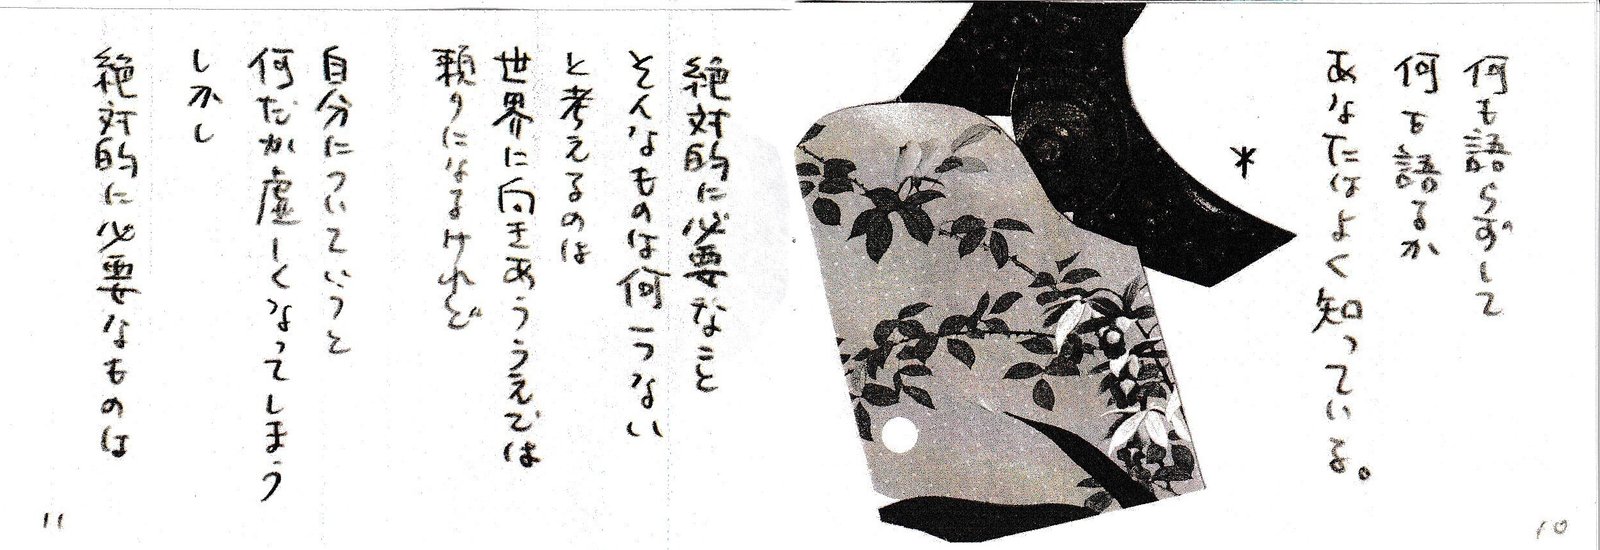 何も語らずして
何を語るか
あなたはよく知っている。
*
絶対的に必要なこと
そんなものは何一つない
と考えるのは
世界に向きあううえでは
頼りになるけれど
自分についていうと
何だか虚しくなってしまう
しかし
絶対的に必要なものは
10
11